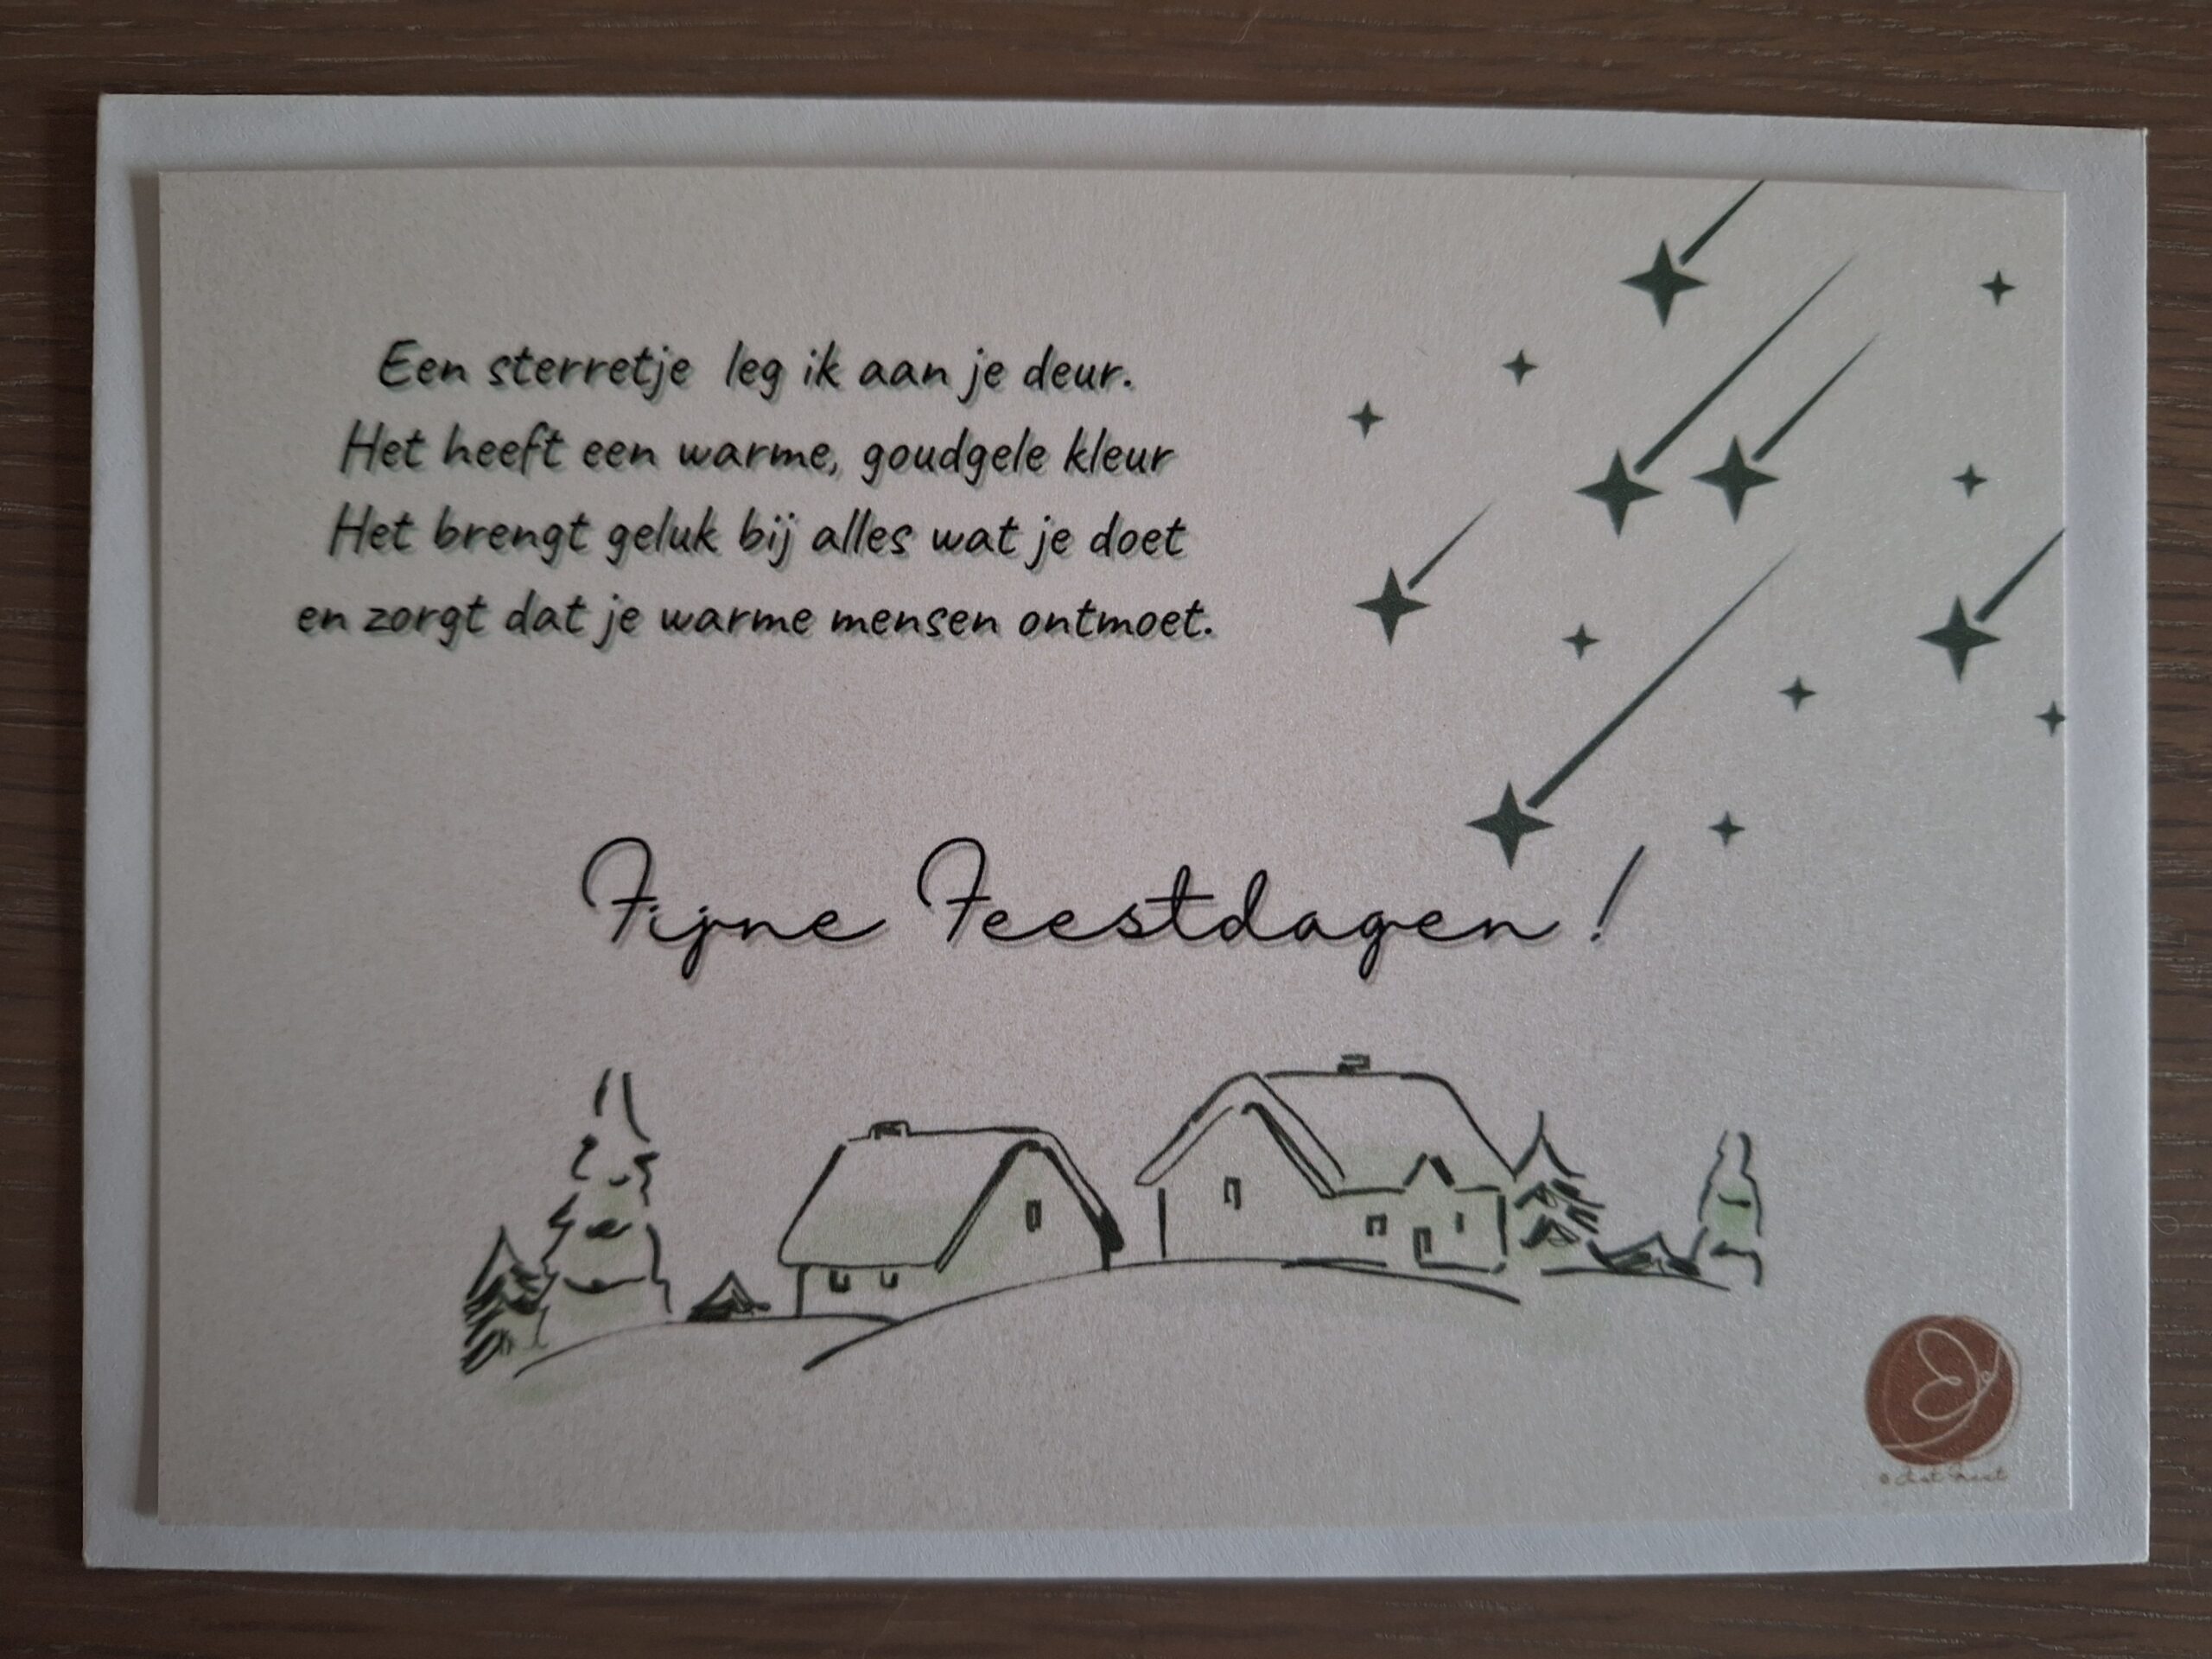 Een sterretje leg ik aan je deur.
Het heeft een warme, goudgele kleur
Het brengt geluk bij alles wat je doet
en zorgt dat je warme mensen ontmoet.
Fijne Feestdagen!